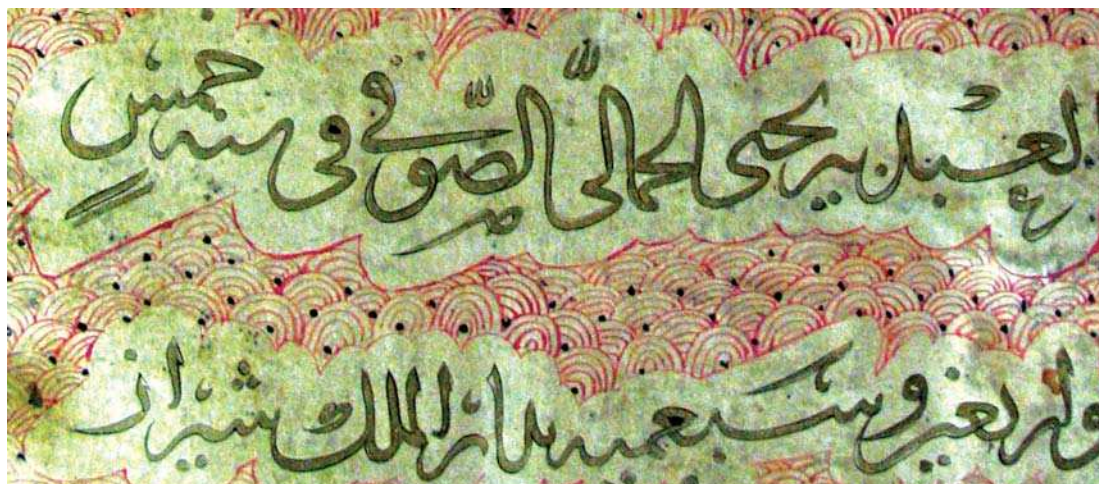 لعبد بير يحيى الجمالىّ الصّوفي فى سنه خمس
واربعين وسبعميه بدار الملك شيراز